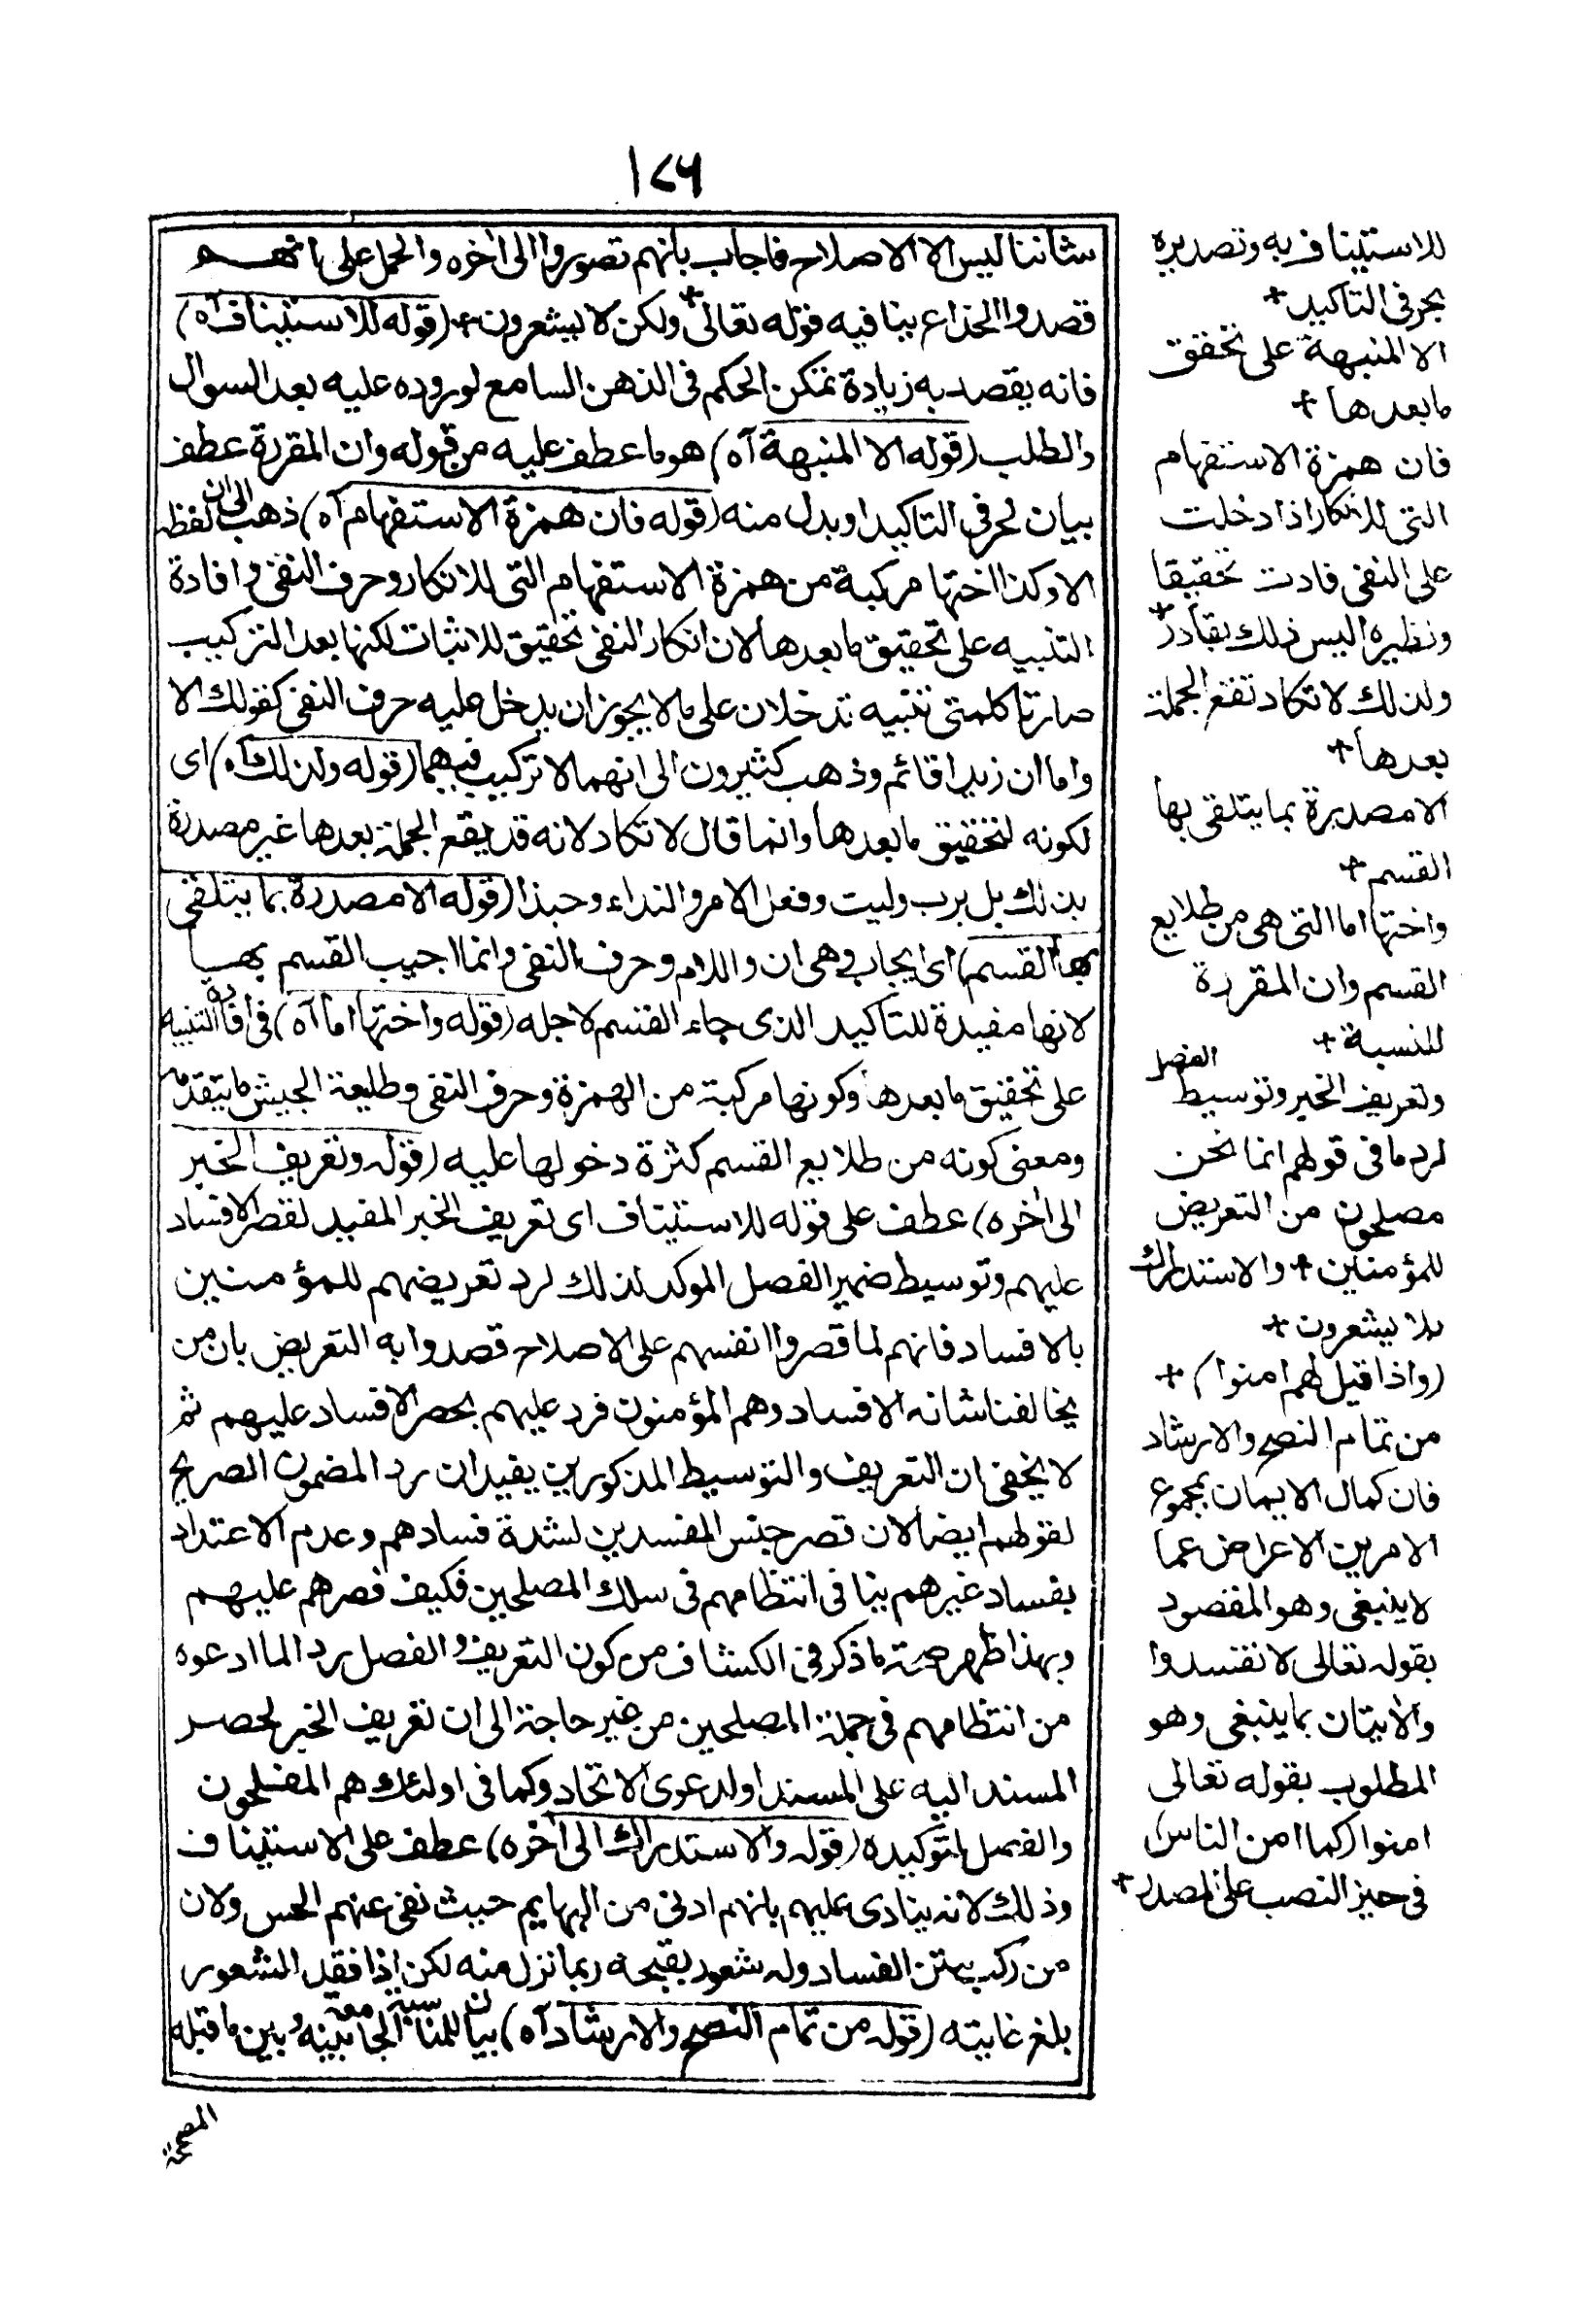 ١٧٦
شاننا ليس الا الاصلاح فاجاب بانهم تصوروا الى اخره والحمل على انهم
قصدوا الخداع ينافيه قوله تعالى + ولكن لا يشعرون + (قوله للاستيناف اه)
فانه يقصد به زيادة تمكن الحكم فى الذهن السامع لوروده عليه بعد السوال
والطلب (قوله الا المنبهة آه) هو ما عطف عليه من قوله وان المقررة عطف
بيان لحرفى التاكيد او بدل منه (قوله فان همزة الاستفهام آه) ذهب الى ان لفظه
الا وكذا اختها مركبة من همزة الاستفهام التى للانكار وحرف النفى وافادة
التنبيه على تحقيق ما بعدها لان انكار النفى تحقيق للاثبات لكنها بعد التركيب
صارتا كلمتى تنبيه تدخلان على ما لا يجوز ان يدخل عليه حرف النفى كقولك الا
واما ان زيدا قائم وذهب كثيرون الى انهما لا تركيب فيهما (قوله ولذلك آه) اى
لكونه لتحقيق ما بعدها وانما قال لا تكاد لانه قد يقع الجملة بعدها غير مصدرة
بذلك بل برب وليت وفعل الامر والنداء وحبذا (قوله الا مصدرة بما يتلقى
بها القسم) اى يجاب وهى ان واللام وحرف النفى وانما اجيب القسم بها
لانها مفيدة للتاكيد الذى جاء القسم لاجله (قوله واختها اما آه) فى افادة التنبيه
على تحقيق ما بعدها وكونها مركبة من الهمزة وحرف النفى وطليعة الجيش ما يتقدمه
ومعنى كونه من طلايع القسم كثرة دخولها عليه (قوله وتعريف الخبر
الى اخره) عطف على قوله للاستيناف اى تعريف الخبر المفيد لقصر الافساد
عليهم وتوسيط ضمير الفصل الموكد لذلك لرد تعريضهم للمؤمنين
بالافساد فانهم لما قصروا انفسهم على الاصلاح قصدوا به التعريض بان من
يخالفنا شانه الافساد وهم المؤمنون فرد عليهم بحصر الافساد عليهم ثم
لا يخفى ان التعريف والتوسيط المذكورين يفيدان رد المضمون الصريح
لقولهم ايضا لان قصر جنس المفسدين لشدة فسادهم وعدم الاعتداد
بفساد غيرهم ينافى انتظامهم فى سلك المصلحين فكيف قصرهم عليهم
وبهذا ظهر صحة ما ذكر فى الكشاف من كون التعريف والفصل رد الما ادعوه
من انتظامهم فى جملة المصلحين من غير حاجة الى ان تعريف الخبر لحصر
المسند اليه على المسند او لدعوى الاتحاد وكما فى اولئك هم المفلحون
والفصل لتوكيده (قوله والاستدراك الى اخره) عطف على الاستيناف
وذلك لانه ينادى عليهم بانهم ادنى من البهايم حيث نفى عنهم الحس ولان
من ركب متن الفساد وله شعور بقبحه ربما نزل منه لكن اذا فقد الشعور
بلغ غايته (قوله من تمام النصح والارشاد آه) بيان للمناسبة الجامعة بينه وبين ما قبله
للاستيناف به وتصديره
بحرفى التاكيد +
الا المنبهة على تحقق
ما بعدها +
فان همزة الاستفهام
التى للانكار اذا دخلت
على النفى فادت تحقيقا
ونظيره اليس ذلك بقادر +
ولذلك لا تكاد تقع الجملة
بعدها +
الا مصدرة بما يتلقى بها
القسم +
واختها اما التى هى من طلايع
القسم وان المقررة
للنسبة +
وتعريف الخبر وتوسيط الفصل
لرد ما فى قولهم انما نحن
مصلحون من التعريض
للمؤمنين + والاستدراك
بلا يشعرون +
(واذا قيل لهم امنوا) +
من تمام النصح والارشاد
فان كمال الايمان بمجموع
الامرين الاعراض عما
لا ينبغى وهو المقصود
بقوله تعالى لا تفسدوا
والاتيان بما ينبغى وهو
المطلوب بقوله تعالى
امنوا (كما امن الناس)
فى حيز النصب على المصدر +